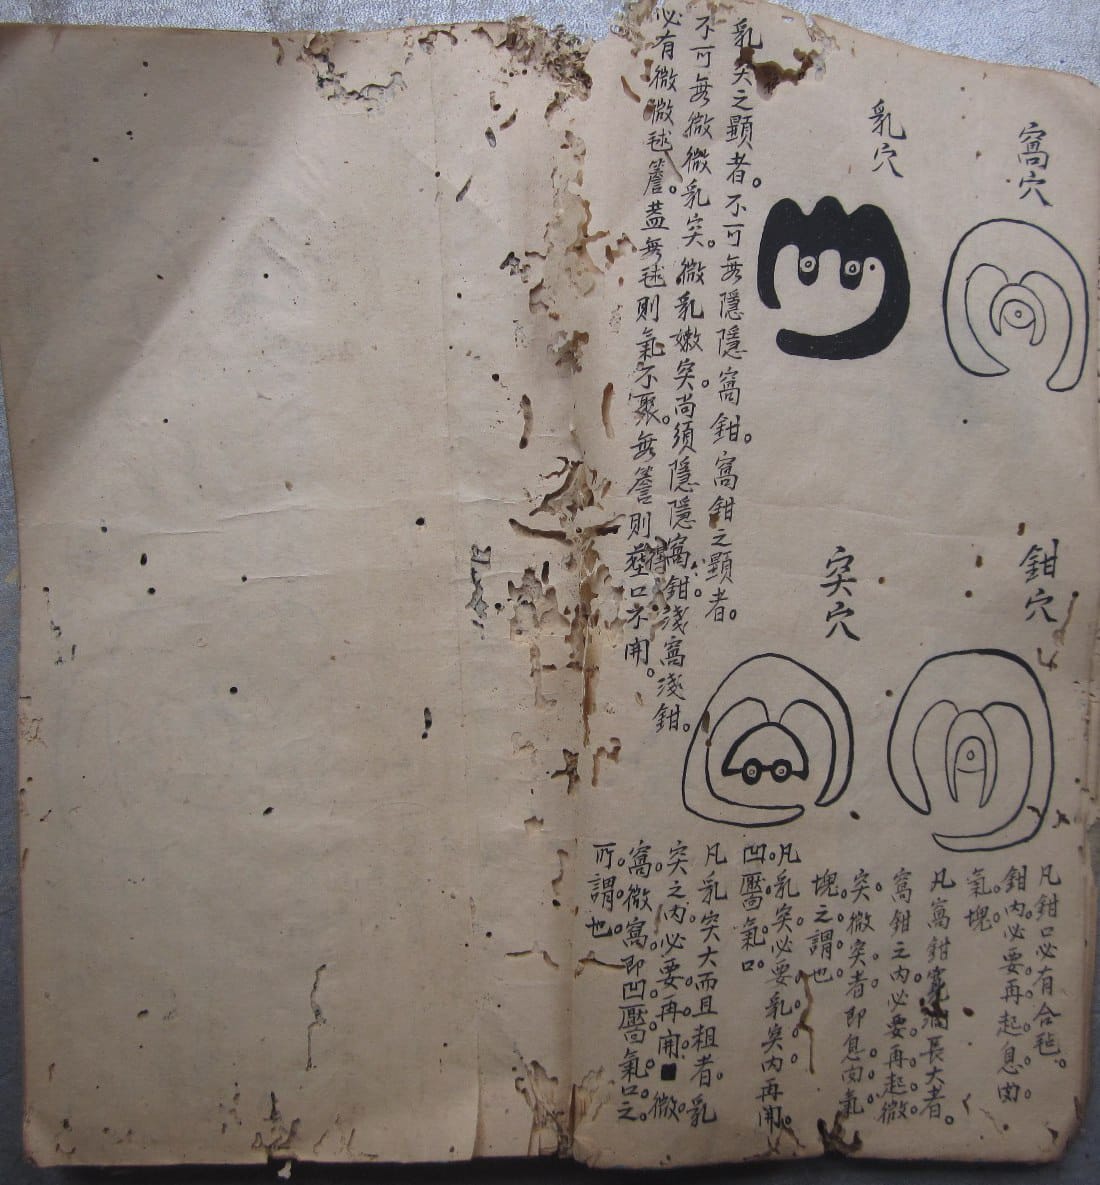 窩穴
乳穴
鉗穴
突穴
凡鉗口必有合毡。
鉗內必要再起息肉。
氣塊。
凡窩鉗寬濶長大者。
窩鉗之內必要再起微
突。微突者即息肉氣
塊之謂也
凡乳突必要乳突內再開。
凹壓氣口
凡乳突大而且粗者。乳
突之內必要再開■微
窩。微窩即凹壓氣口之
所謂也
乳突之顯者。不可無隱隱窩鉗。窩鉗之顯者。
不可無微微乳突。微乳嫩突。尚須隱隱窩鉗。淺窩淺鉗。
必有微微毬簷。葢無毬則氣不聚。無簷則塟口不開。